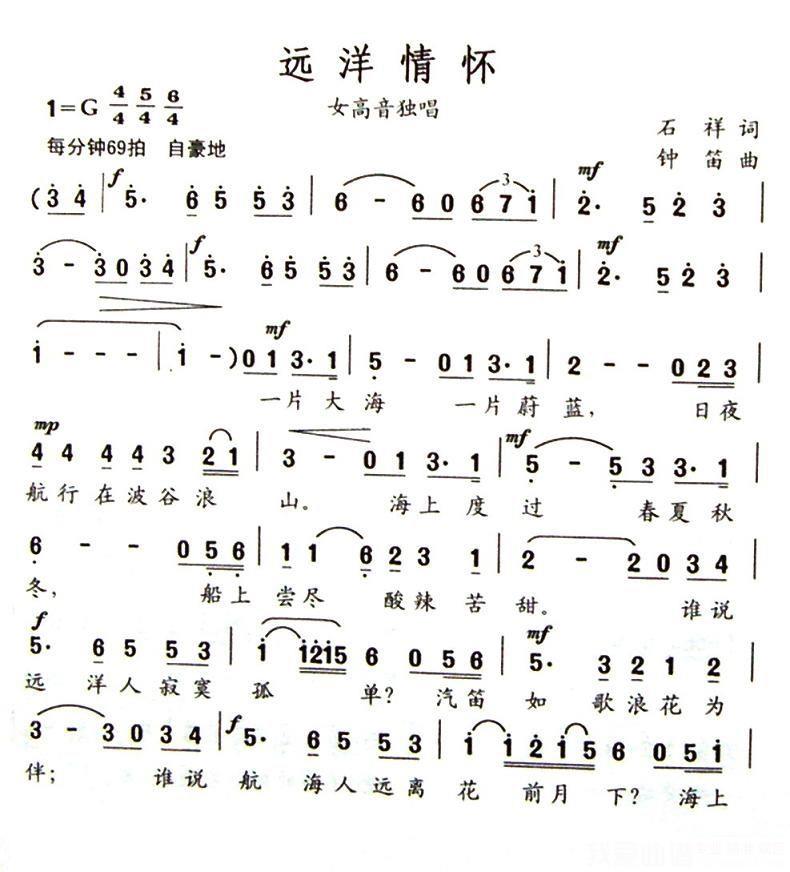 远洋情怀
女高音独唱
1=G 4/4 5/4 6/4
石祥词
每分钟69拍 自豪地
钟笛曲
f mf
(3 4 | 5· 6 5 5 3 | 6 - 6 0 6 7 1 | 2· 5 2 3 |
f mf
3 - 3 0 3 4 | 5· 6 5 5 3 | 6 - 6 0 6 7 1 | 2· 5 2 3 |
mf
1 - - - | 1 - ) 0 1 3· 1 | 5 - 0 1 3· 1 | 2 - - 0 2 3 |
一片大海 一片蔚蓝, 日夜
mp mf
4 4 4 4 3 2 1 | 3 - 0 1 3· 1 | 5 - 5 3 3· 1 |
航行在波谷浪 山。 海上度过 春夏秋
6 - - 0 5 6 | 1 1 6 2 3 1 | 2 - 2 0 3 4 |
冬, 船上尝尽 酸辣苦甜。 谁说
f mf
5· 6 5 5 3 | 1 1 2 1 5 6 0 5 6 | 5· 3 2 1 2 |
远洋人寂寞孤 单? 汽笛如歌浪花为
f
3 - 3 0 3 4 | 5· 6 5 5 3 | 1 1 2 1 5 6 0 5 1 |
伴; 谁说航海人远离花 前月下? 海上